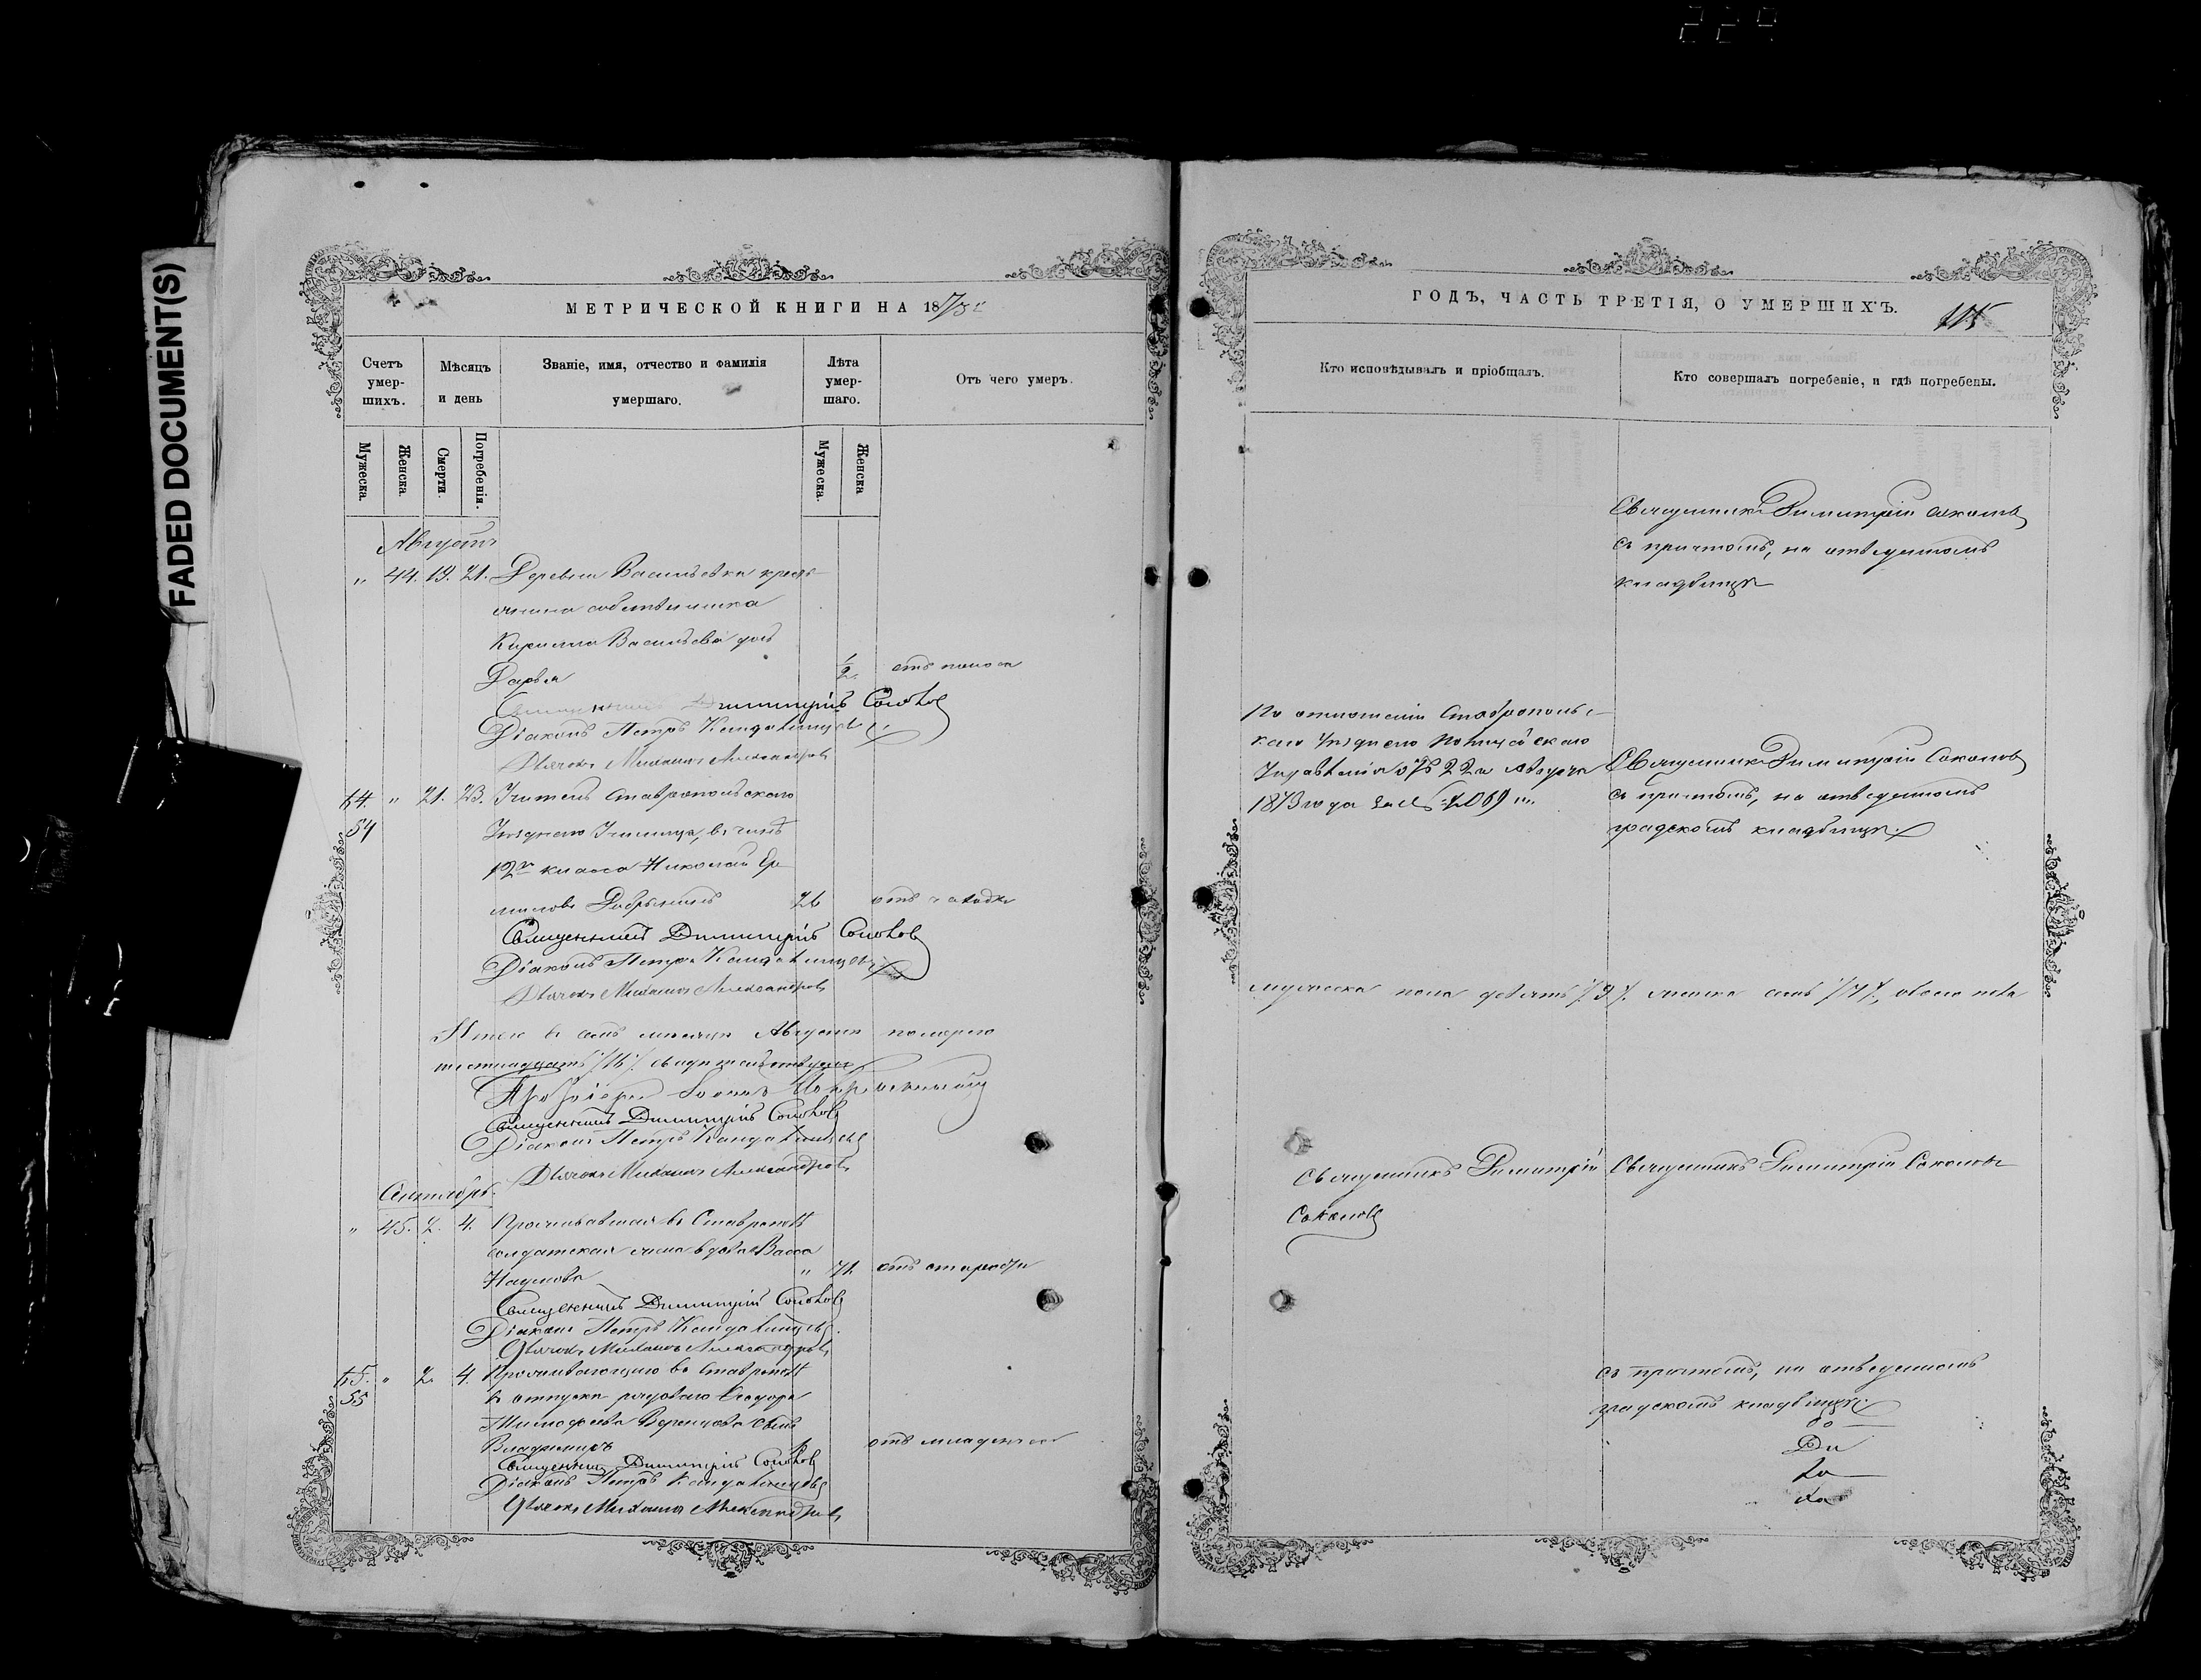 224
FADED DOCUMENT(S)
МЕТРИЧЕСКОЙ КНИГИ НА 1873
Счетъ умер-шихъ.
Мѣсяцъ и день
Званіе, имя, отчество и фамилія умершаго.
Лѣта умер-шаго.
Отъ чего умеръ.
Мужеска.
Женска.
Смерти.
Погребенія.
Мужеска.
Женска
Августъ
" 44. 19. 21. Деревни Васильевки кресть-
янина собственника
Кирилла Васильева дочь
Дарья 1/2 отъ поноса
Священникъ Димитрій Соколовъ
Діаконъ Петръ
Дьячокъ Михаилъ Александровъ
" 21. 23. Учитель Ставропольскаго
54 Уѣзднаго Училища, въ чинѣ
12го класса Николай
26 отъ чахотки
Священникъ Димитрій Соколовъ
Діаконъ Петръ
Дьячокъ Михаилъ Александровъ
Итого въ семъ мѣсяцѣ Августѣ померло
шестнадцать /16/.
Священникъ Димитрій Соколовъ
Діаконъ Петръ
Дьячокъ Михаилъ Александровъ
Сентябрь.
" 45. 2. 4. Проживавшая въ Ставрополѣ
солдатская жена вдова Васса
Наумова " 71. отъ старости
Священникъ Димитрій Соколовъ
Діаконъ Петръ
Дьячокъ Михаилъ Александровъ
45. " 2. 4. Проживающаго въ Ставрополѣ
55 въ отпуску рядоваго Ѳеодора
Тимофеева сынъ
Владимиръ отъ
Священникъ Димитрій Соколовъ
Діаконъ Петръ
Дьячокъ Михаилъ Александровъ
ГОДЪ, ЧАСТЬ ТРЕТІЯ, О УМЕРШИХЪ.
115
Кто исповѣдывалъ и пріобщалъ.
Кто совершалъ погребеніе, и гдѣ погребены.
Священникъ Димитрій Соколовъ
съ причтомъ, на отведенномъ
кладбищѣ
По отношенію Ставрополь-
скаго Уѣзднаго Полицейскаго
Управленія отъ 22го Августа
1873 года за № 4069
Священникъ Димитрій Соколовъ
съ причтомъ, на отведенномъ
градскомъ кладбищѣ.
мужеска пола девять /9/. женска семь /7/,
Священникъ Димитрій
Соколовъ
Священникъ Димитрій Соколовъ
съ причтомъ, на отведенномъ
градскомъ кладбищѣ.